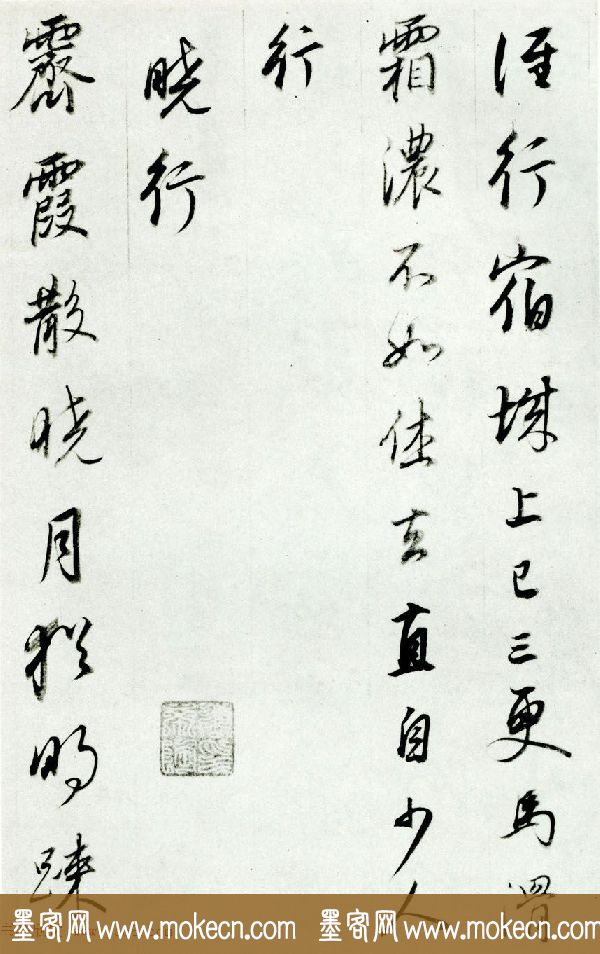 誰行宿城上已三更馬滑
霜濃不如休去直自少人
行
曉行
霽霞散曉月猶明疎
墨客网www.mokecn.com 墨客网www.mokecn.com